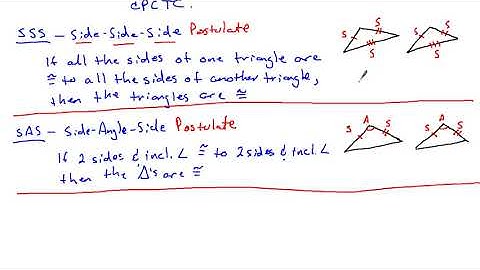 CPCTC.
SSS – Side-Side-Side Postulate
If all the sides of one triangle are
≅ to all the sides of another triangle,
then the triangles are ≅
S S S
S S
SAS – Side-Angle-Side Postulate
If 2 sides & incl. ∠ ≅ to 2 sides & incl. ∠
then the Δ's are ≅
S A S
S A S